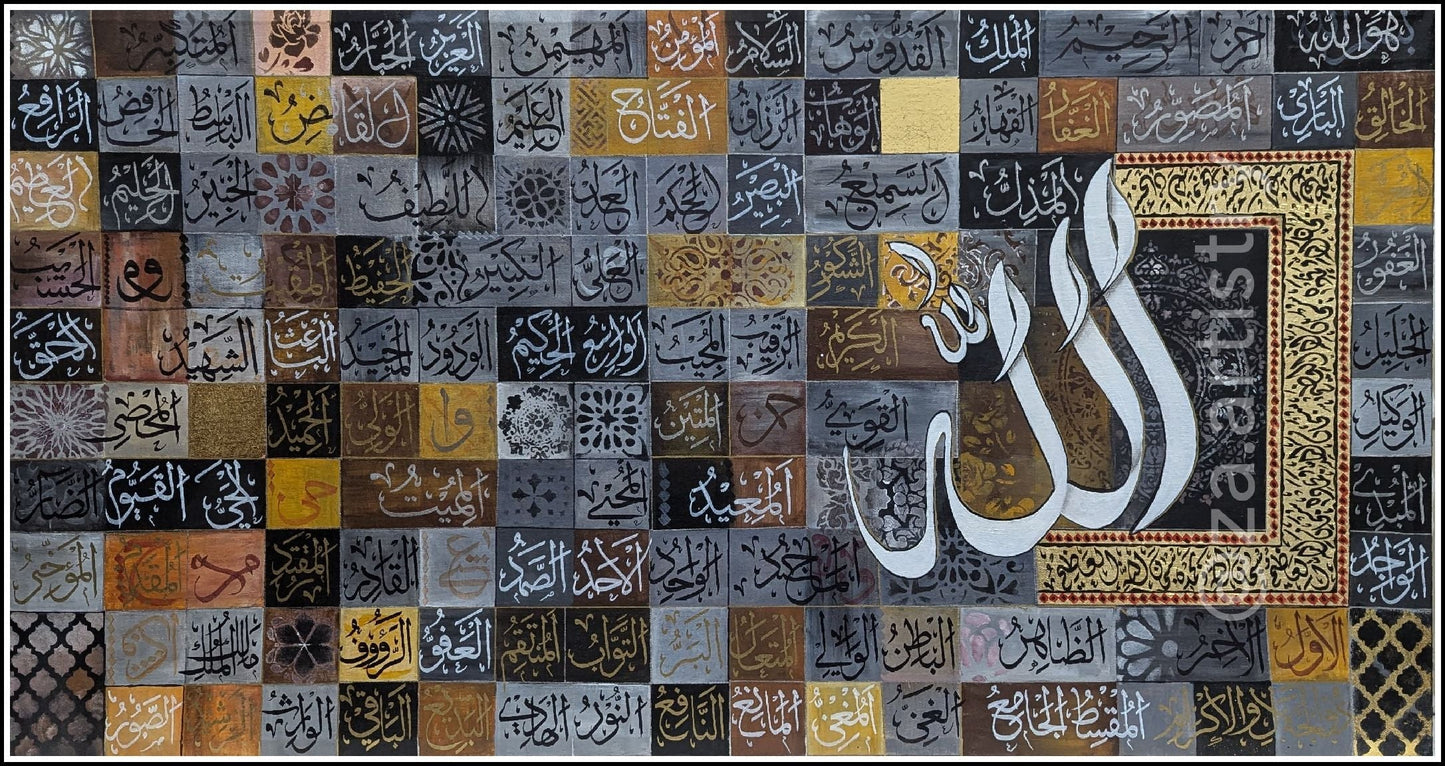 هو الله الرحمن الرحيم الملك القدوس السلام المؤمن المهيمن العزيز الجبار المتكبر
الخالق البارئ المصور الغفار القهار الوهاب الرزاق الفتاح العليم القا ض الباسط الخافض الرافع
المذل السميع البصير الحكم العدل اللطيف الخبير الحليم العظيم
الغفور الشكور العلي الكبير الحفيظ المقيت الحسيب
الله
الجليل الكريم الرقيب المجيب الواسع الحكيم الودود المجيد الباعث الشهيد الحق
الوكيل القوي المتين وا الولي الحميد المحصي
المبدئ المعيد المحيي المميت حي الحي القيوم الضار
الواجد الماجد الواحد الاحد الصمد القادر المقتدر المقدم المؤخر
الاول الاخر الظاهر الباطن الوالي المتعال البر التواب المنتقم العفو الرؤوف مالك الملك
ذو الجلال والاكرام المقسط الجامع الغني المغني المانع النافع النور الهادي البديع الباقي الوارث الرشيد الصبور
@za.artist